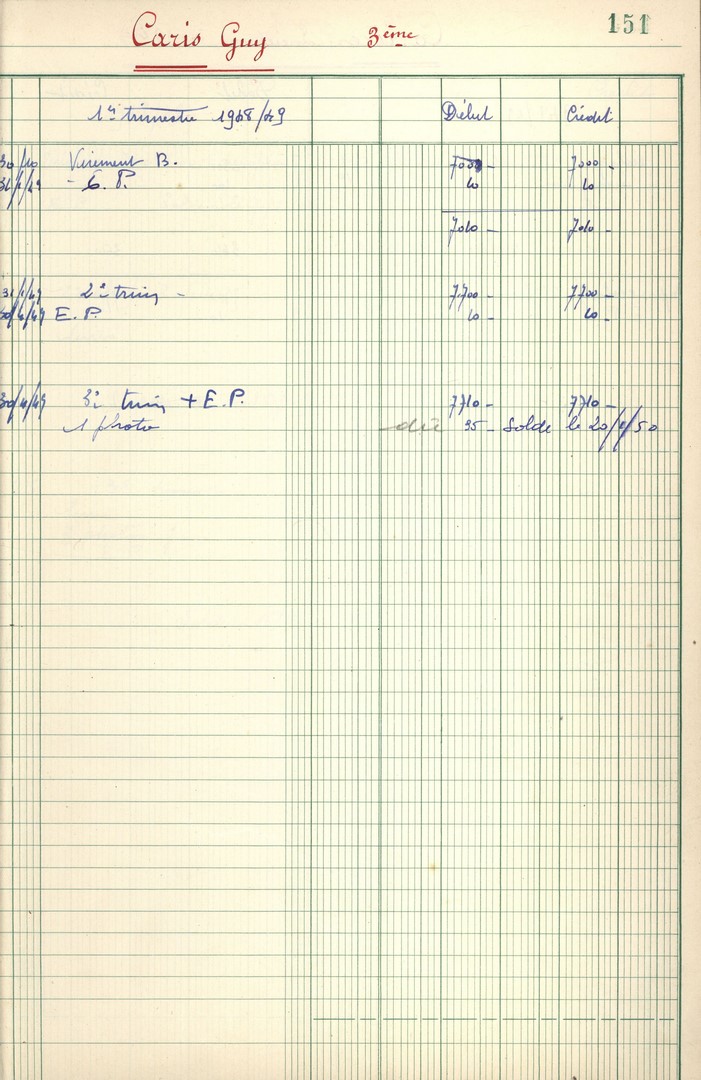 151
Caris Guy 3ème
1er trimestre 1948/49 Début Crédit
30/10 Virement B. 7000 - 7000 -
- E. P. 10 10
7010 - 7010 -
31/1/49 2e trim - 7700 - 7700 -
/49 E. P. 10 - 10 -
30/4/49 3e trim + E. P. 7710 - 7710 -
1 photo dû 35 - Solde le 20/ /50